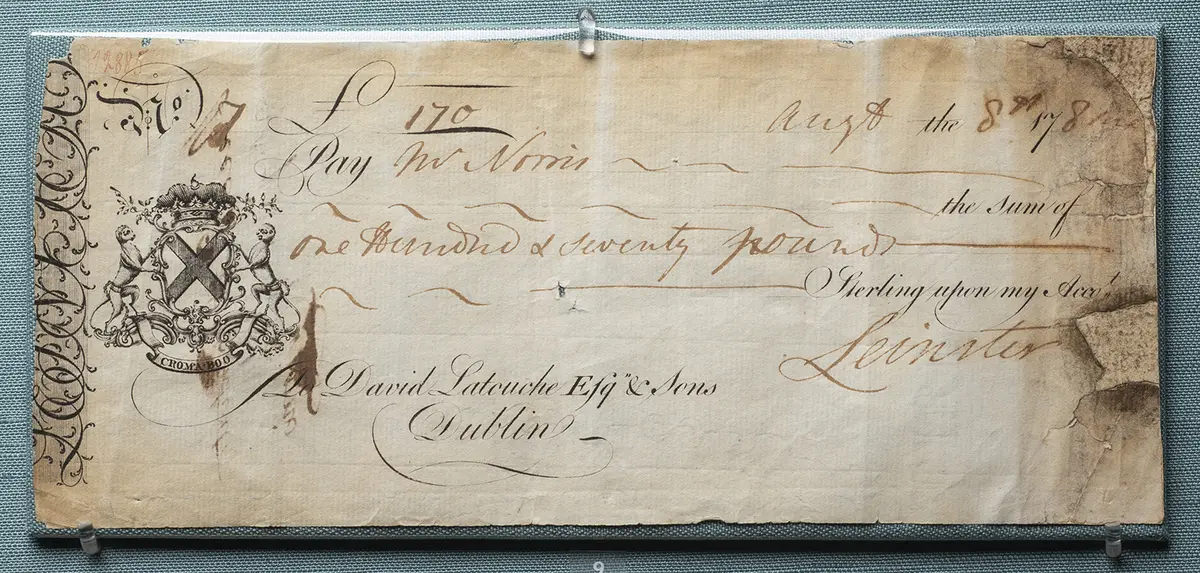 No. 7 £ 170 Augt the 8th 178
Pay Mr Norris
the sum of
one Hundred & seventy pounds
Sterling upon my Acco.t
Leinster
CROM A BOO
To David Latouche Esqr. & Sons
Dublin
9